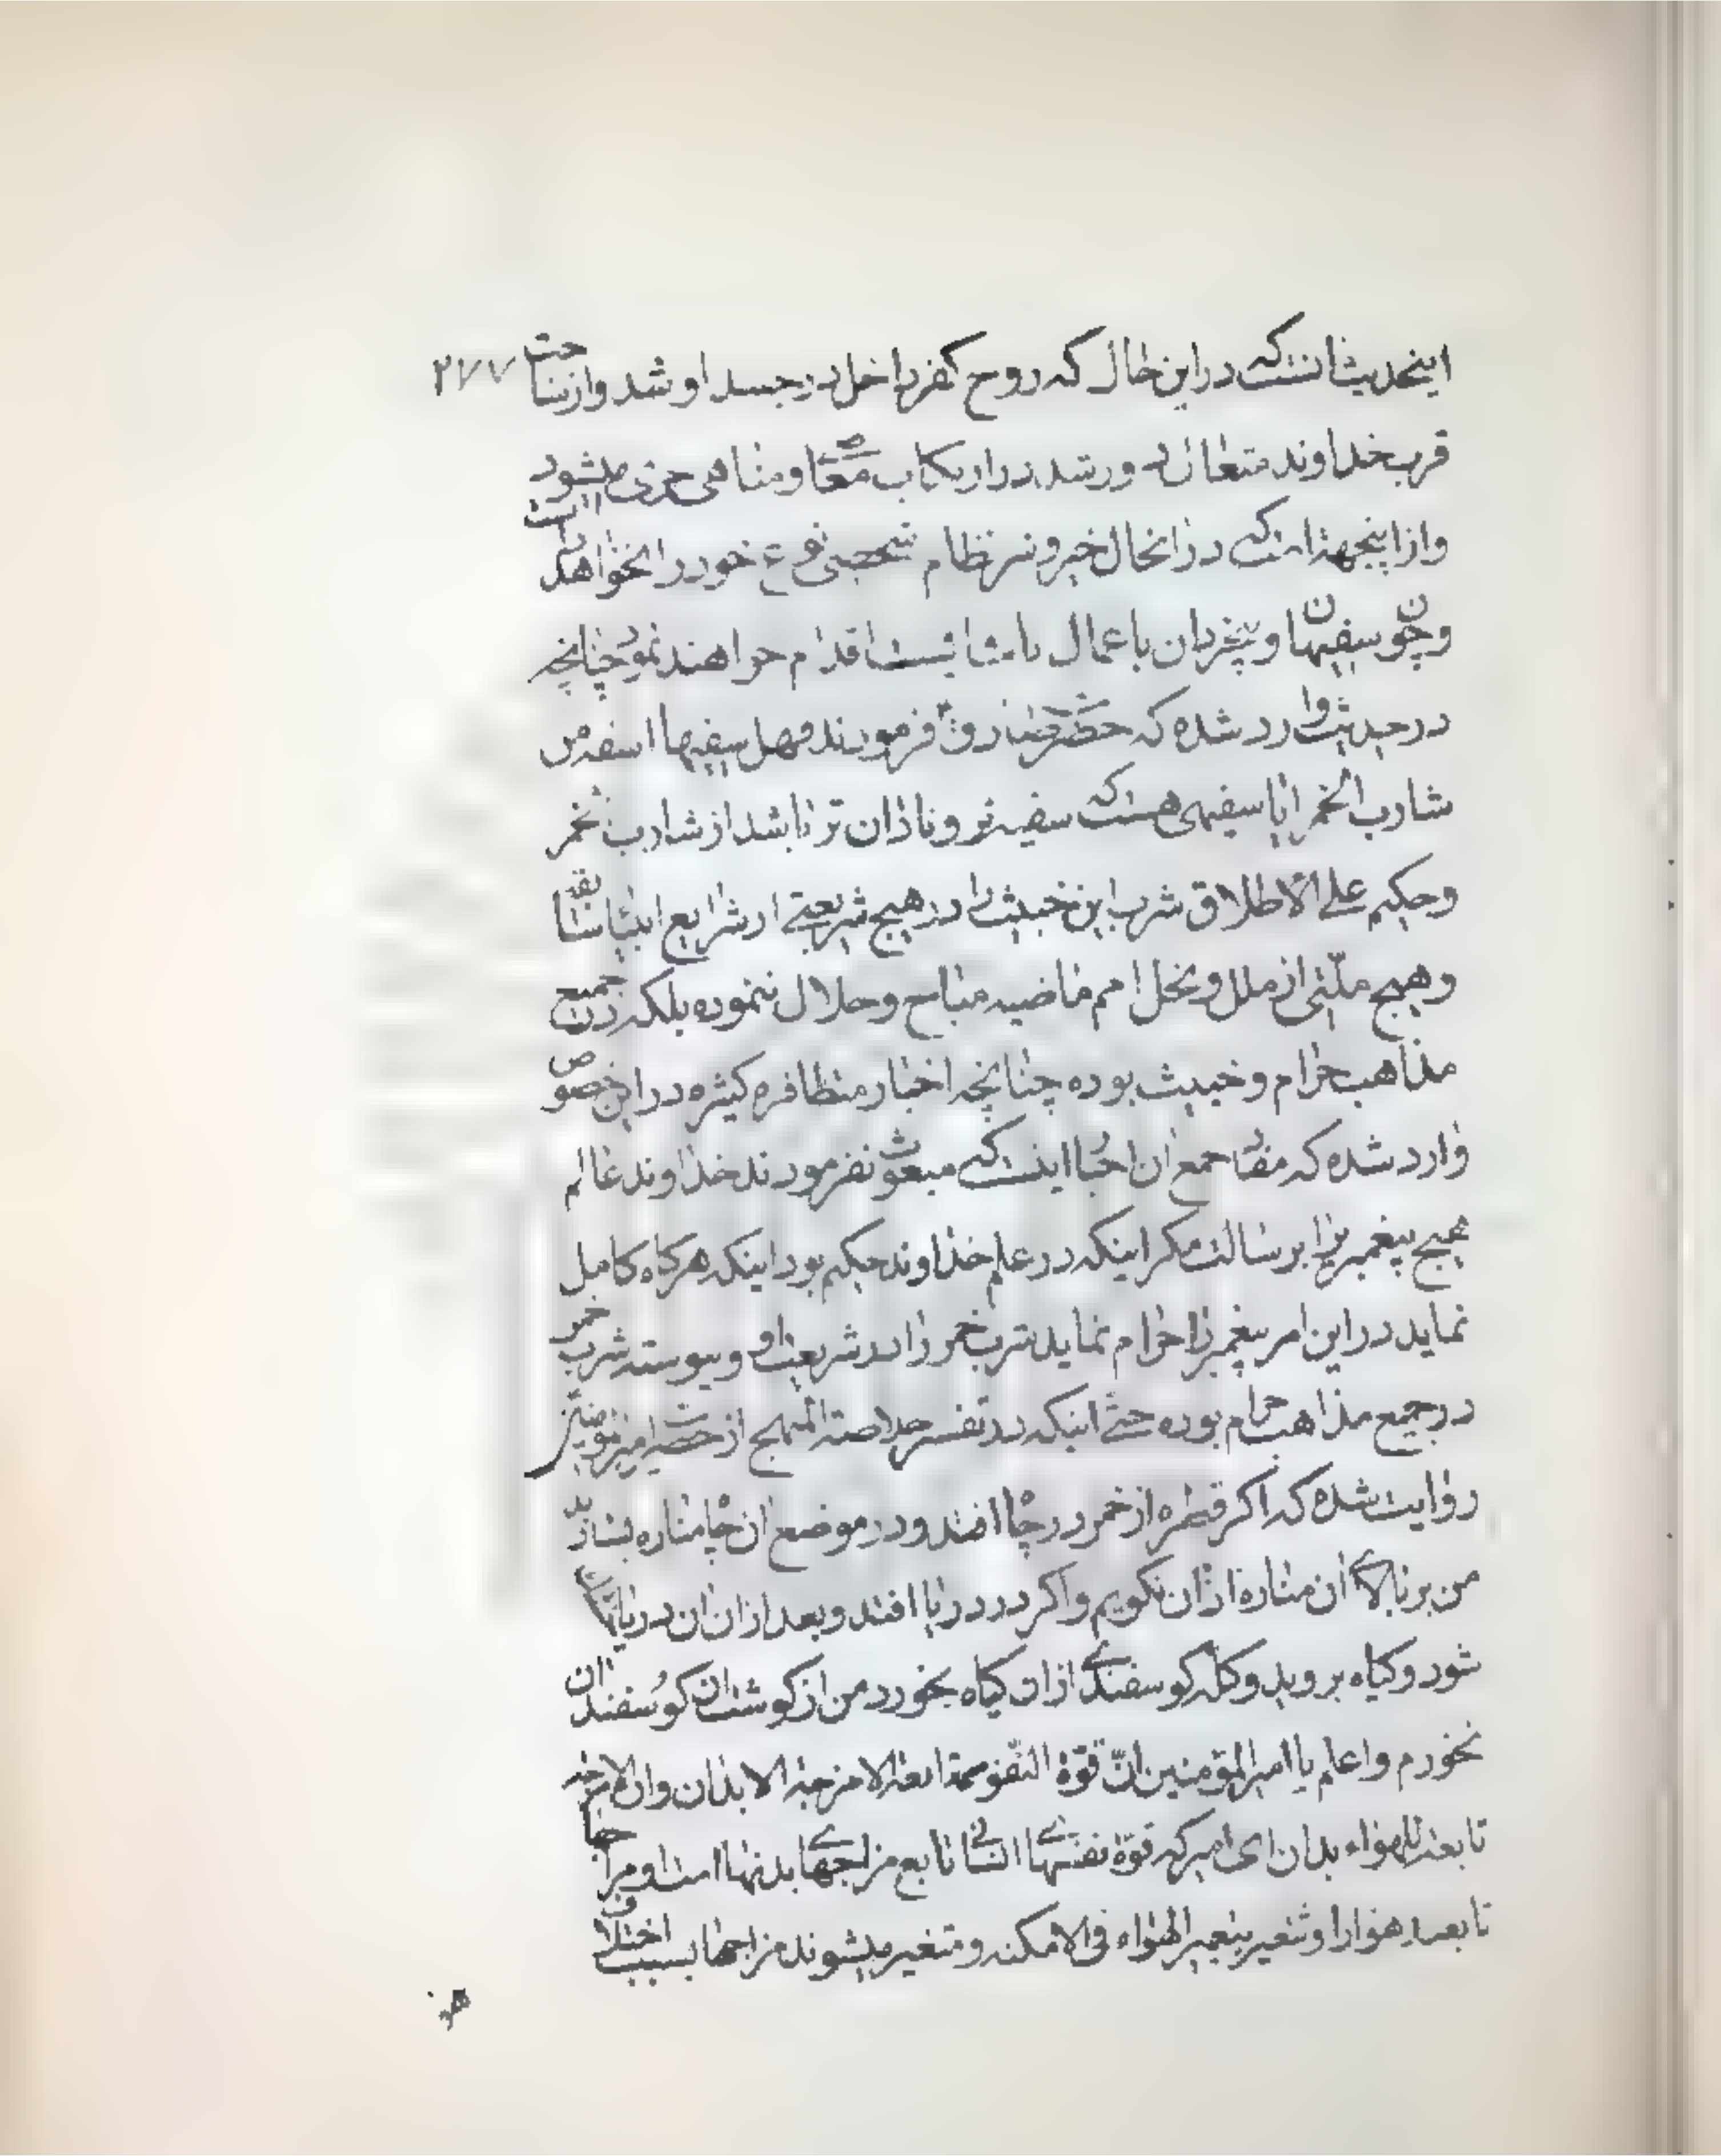 اینحدیث انستکه در این حال که روح کفر داخل در جسد او شد و از ساحت ۲۷۷
قرب خداوند متعال دور شد در ارتکاب معاصی و مناهی جری میشود
و از اینجهة است که در انحال خیر و شر نظام شخصی نوع خود را نخواهد دانست
و چون سفیهان و بیخردان باعمال ناشایست اقدام خواهند نمود چنانچه
در حدیث وارد شده که حضرت صادق فرمودند فهل سفیها اسفه من
شارب الخمر ایا سفیهی هست که سفیه تر و نادان تر باشد از شارب خمر
و حکیم علی الاطلاق شرب این خبیث را در هیچ شریعتی از شرایع انبیا سابقه
و هیچ ملّتی از ملل و نحل امم ماضیه مباح و حلال ننموده بلکه در جمیع
مذاهب حرام و خبیث بوده چنانچه اخبار متظافره کثیره در این خصوص
وارد شده که مفاد جمع ان اخبار اینست که مبعوث نفرمودند خداوند عالم
هیچ پیغمبر یرا برسالت مکر اینکه در علم خداوند حکیم بود اینکه هرکاه کامل
نماید در این امر پیغمبر را حرام نماید شرب خمر را در شریعت او و پیوسته شرب خمر
در جمیع مذاهب حرام بوده حتّی اینکه در تفسیر خلاصة المنهج از حضرت امیر المؤمنین
روایت شده که اکر قطره از خمر در چاه افتد و در موضع ان چاه مناره بسازند
من بر بالای ان مناره اذان نکویم و اکر در دریا افتد و بعد از ان ان دریا خشک
شود و کیاه بروید و کله کوسفندی از ان کیاه بخورد من از کوشت ان کوسفندان
نخورم و اعلم یا امیر المؤمنین انّ قوّة النّفوس تابعة لامزجة الابدان وان الامزجه
تابعة للهواء بدان ای امیر که قوّة نفسهای انسانی تابع مزاجهای بدنها است و مزاجها
تابعند هوا را و تتغیر بتغییر الهواء فی الامکنه و متغیر میشوند مزاجها بسبب اختلاف
هو